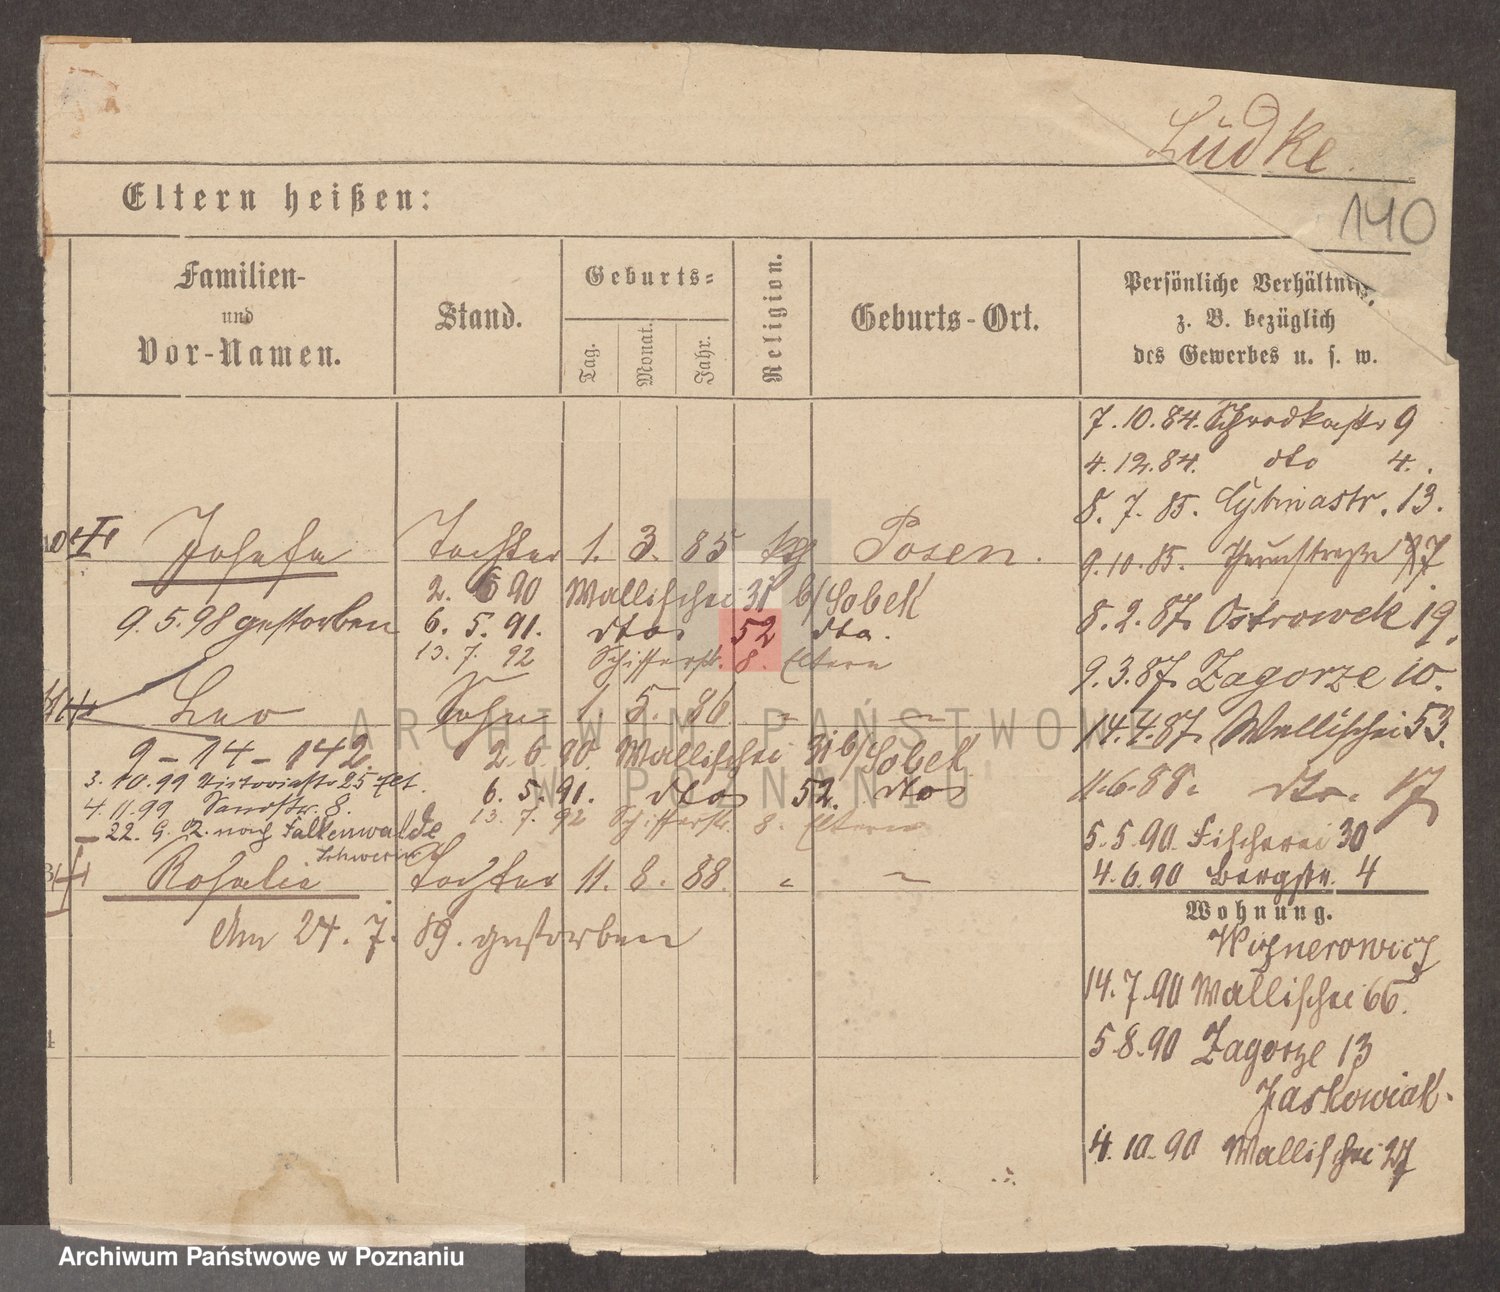 Lüdke.
140
Eltern heißen:
Familien-
und
Vor-Namen.
Stand.
Geburts-
Tag.
Monat.
Jahr.
Religion.
Geburts-Ort.
Persönliche Verhältnisse,
z. B. bezüglich
des Gewerbes u. s. w.
7.10.84. Schrodkastr 9
4.12.84. dto 4.
8. 7. 85. Cybinastr. 13.
9.10.85.
8. 2. 87. Ostrowek 19.
9.3.87. Zagorze 10.
14.4.87. Wallischei 53.
11.6.88. dto. 17
5.5.90. Fischerei 30
4.6.90 Bergstr. 4
Josefa Tochter 1. 3. 85 kth Posen.
2. 6 90 Wallischei 31 b/Sobek
9.5.98 gestorben 6. 5. 91. dto 52 dto.
13. 7. 92 Schifferstr. 8. Eltern
Leo Sohn 1. 5. 86. " "
9 - 14 - 142. 2.6.90. Wallischei 31 b/Sobek
3.10.99 Victoriastr 25 Elt.
6. 5. 91. dto 52. dto
4.11.99 Sandstr. 8. 13. 7. 92 Schifferstr. 8. Eltern
22. 9. 02. nach Falkenwalde
Schwerin
Rosalie Tochter 11. 8. 88. " "
Am 24. 7. 89. gestorben
Wohnung.
14.7.90 Wallischei 66.
5.8.90 Zagorze 13
Jaskowiak.
4.10.90 Wallischei 27
ARCHIWUM PAŃSTWOWE
W POZNANIU
Archiwum Państwowe w Poznaniu